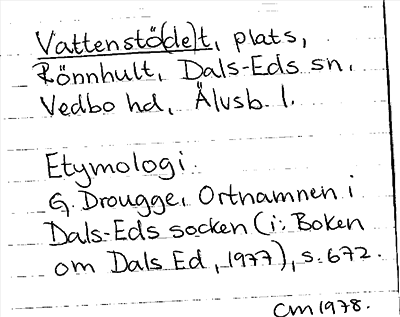 Vattenstö(de)t, plats,
Rönnhult, Dals-Eds sn,
Vedbo hd, Älvsb. l.
Etymologi:
G. Drougge, Ortnamnen i
Dals-Eds socken (i: Boken
om Dals Ed, 1977), s. 672.
CM 1978.